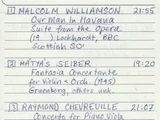 1 MALCOLM WILLIAMSON 21:55
Our Man in Havana
Suite from the Opera
(19 ) Lockhart, BBC
Scottish SO
2 MATYAS SEIBER 19:20
Fantasia Concertante
for Violin & Orch (1945)
Gruenberg, others unk.
3 RAYMOND CHEVREUILLE 21:07
Concerto for Piano, Viola